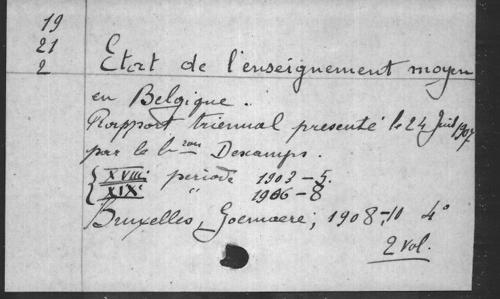 19
21
2
Etat de l'enseignement moyen
en Belgique.
Rapport triennal presenté le 24 Juil 1907
par le b^ron Descamps.
{ XVIIIe periode 1903-5.
XIXe " 1906-8
Bruxelles, Goemaere; 1908-10 4°
2 vol.